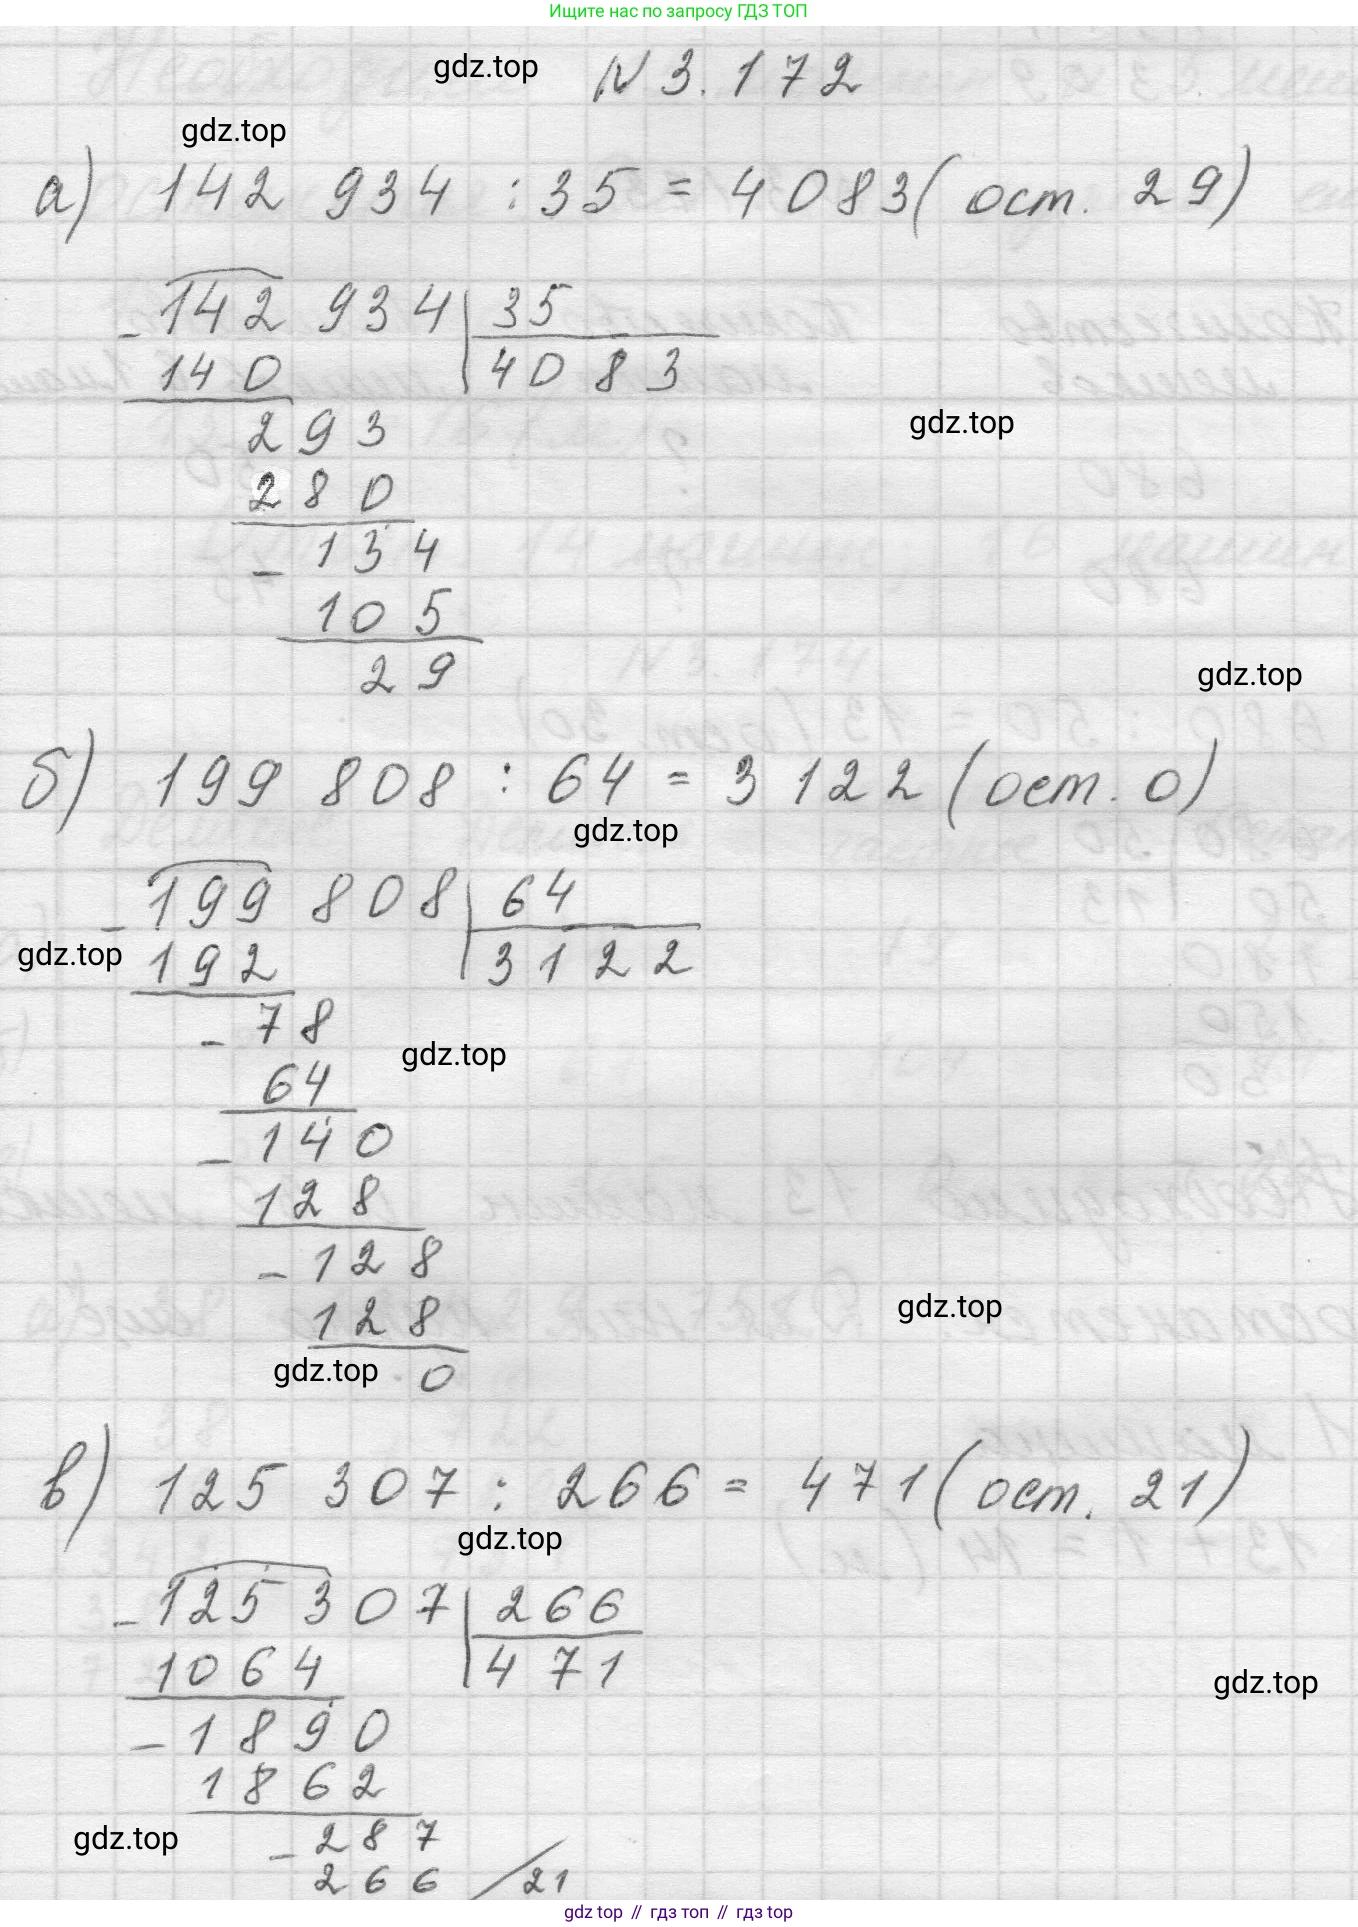 Ищите нас по запросу ГДЗ ТОП
gdz.top
N 3.172
gdz.top
а) 142 934 : 35 = 4083 (ост. 29)
- 142 934 | 35
140 | 4083
gdz.top
293
280
- 134
105
29
gdz.top
б) 199 808 : 64 = 3122 (ост. 0)
gdz.top
- 199 808 | 64
gdz.top
192 | 3122
- 78
gdz.top
64
- 140
128
- 128
gdz.top
128
gdz.top
0
в) 125 307 : 266 = 471 (ост. 21)
gdz.top
- 125 307 | 266
1064 | 471
gdz.top
- 1890
1862
gdz.top
- 287
266 / 21
gdz top // гдз топ // гдз top